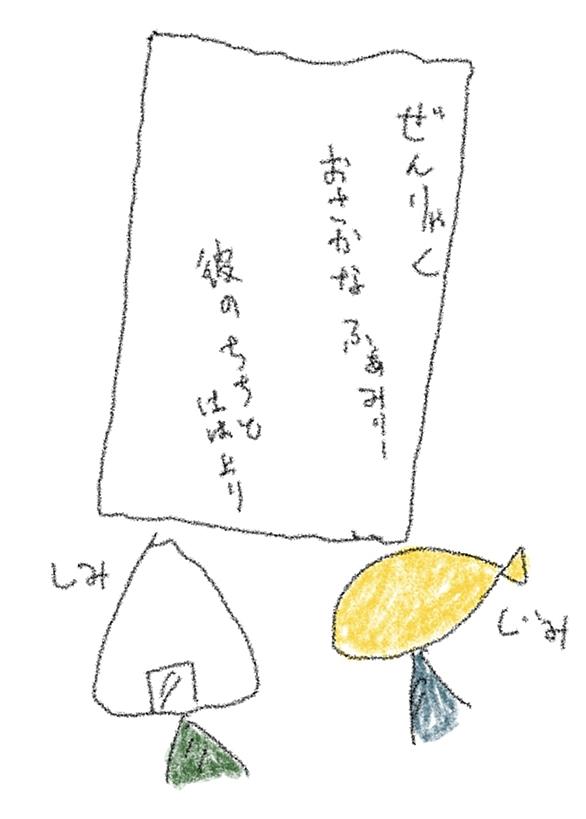 ぜんりゃく
おさかな ふぁみりー
彼の ちちと
ははより
しみ
じみ